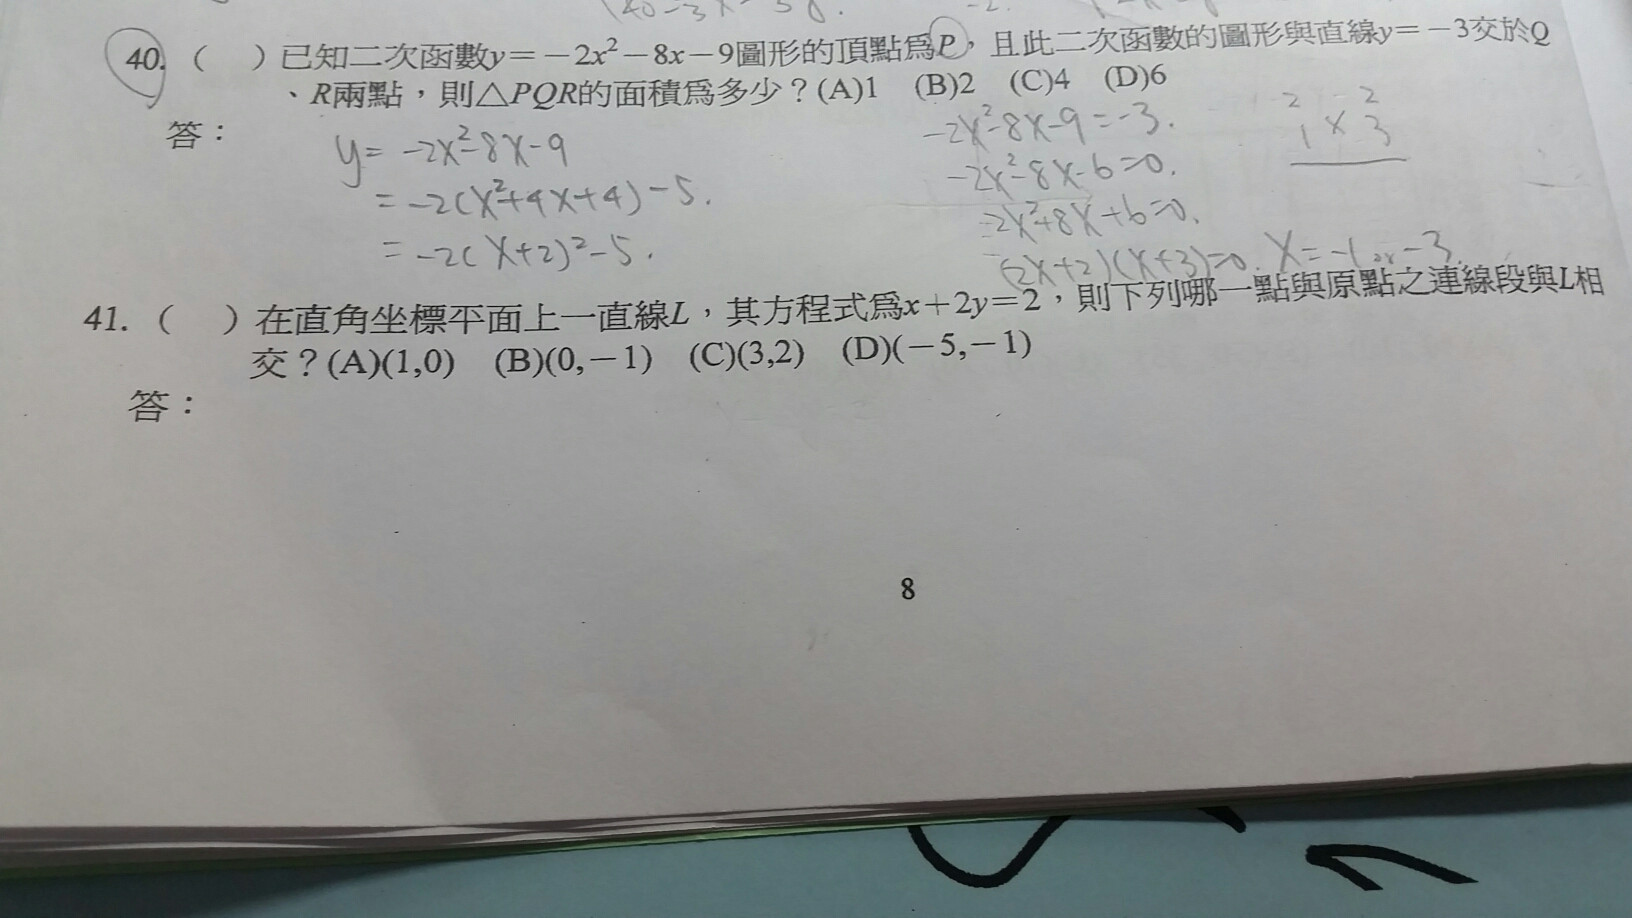 40. (　) 已知二次函數y=－2x²－8x－9圖形的頂點為P，且此二次函數的圖形與直線y=－3交於Q
、R兩點，則△PQR的面積為多少？(A)1　(B)2　(C)4　(D)6
答：
y= -2x²-8x-9
= -2(x²+4x+4)-5.
= -2(x+2)²-5.
-2x²-8x-9=-3.
-2x²-8x-6=0.
2x²+8x+6=0.
(2x+2)(x+3)=0. x=-1 or -3.
2 2
1 × 3
41. (　) 在直角坐標平面上一直線L，其方程式為x＋2y=2，則下列哪一點與原點之連線段與L相
交？(A)(1,0)　(B)(0,－1)　(C)(3,2)　(D)(－5,－1)
答：
8